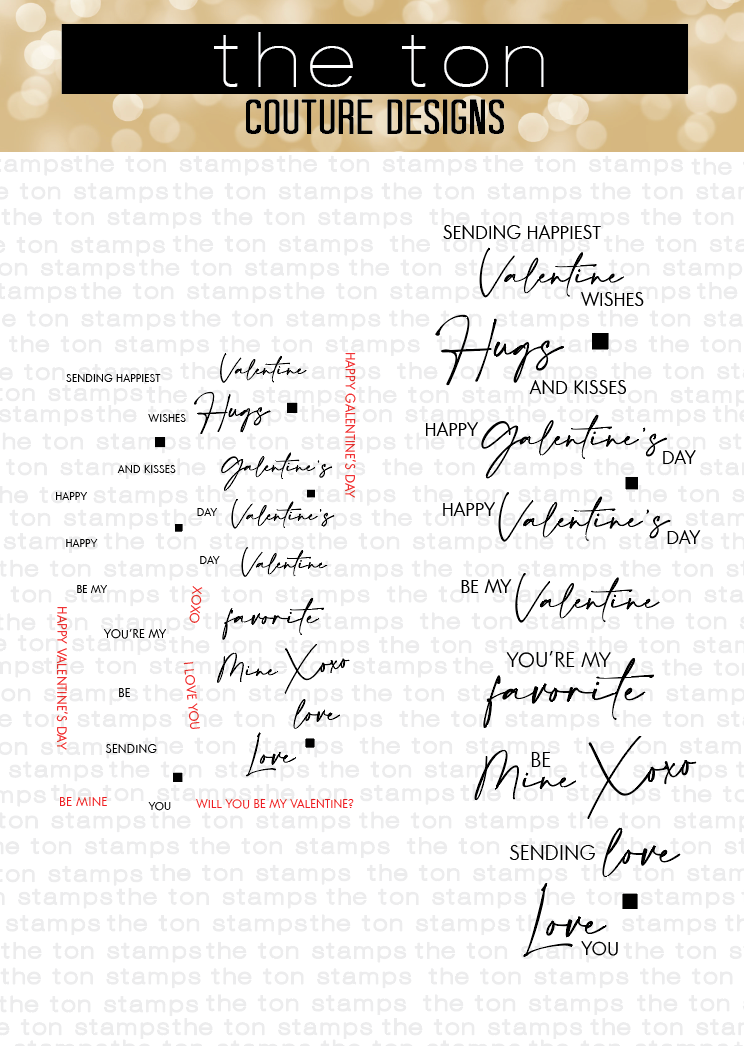 the ton
COUTURE DESIGNS
SENDING HAPPIEST
Valentine
WISHES
Hugs
AND KISSES
Galentine's
HAPPY
DAY
Valentine's
HAPPY
DAY
Valentine
BE MY
XOXO
favorite
YOU'RE MY
Mine Xoxo
BE
love
SENDING
Love
BE MINE
YOU
WILL YOU BE MY VALENTINE?
HAPPY GALENTINE'S DAY
HAPPY VALENTINE'S DAY
I LOVE YOU
SENDING HAPPIEST
Valentine
WISHES
Hugs
AND KISSES
HAPPY Galentine's DAY
HAPPY Valentine's DAY
BE MY Valentine
YOU'RE MY
favorite
BE
Mine Xoxo
SENDING love
Love
YOU
the ton stamps the ton stamps the ton stamps the ton stamps